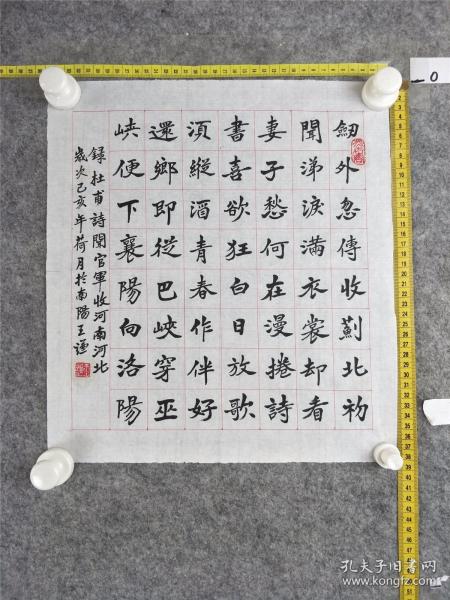 劒外忽傳收薊北初
聞涕淚滿衣裳却看
妻子愁何在漫捲詩
書喜欲狂白日放歌
須縱酒青春作伴好
還鄉即從巴峽穿巫
峽便下襄陽向洛陽
錄杜甫詩聞官軍收河南河北
歲次己亥年荷月於南陽王
孔夫子旧书网
www.kongfz.com
0